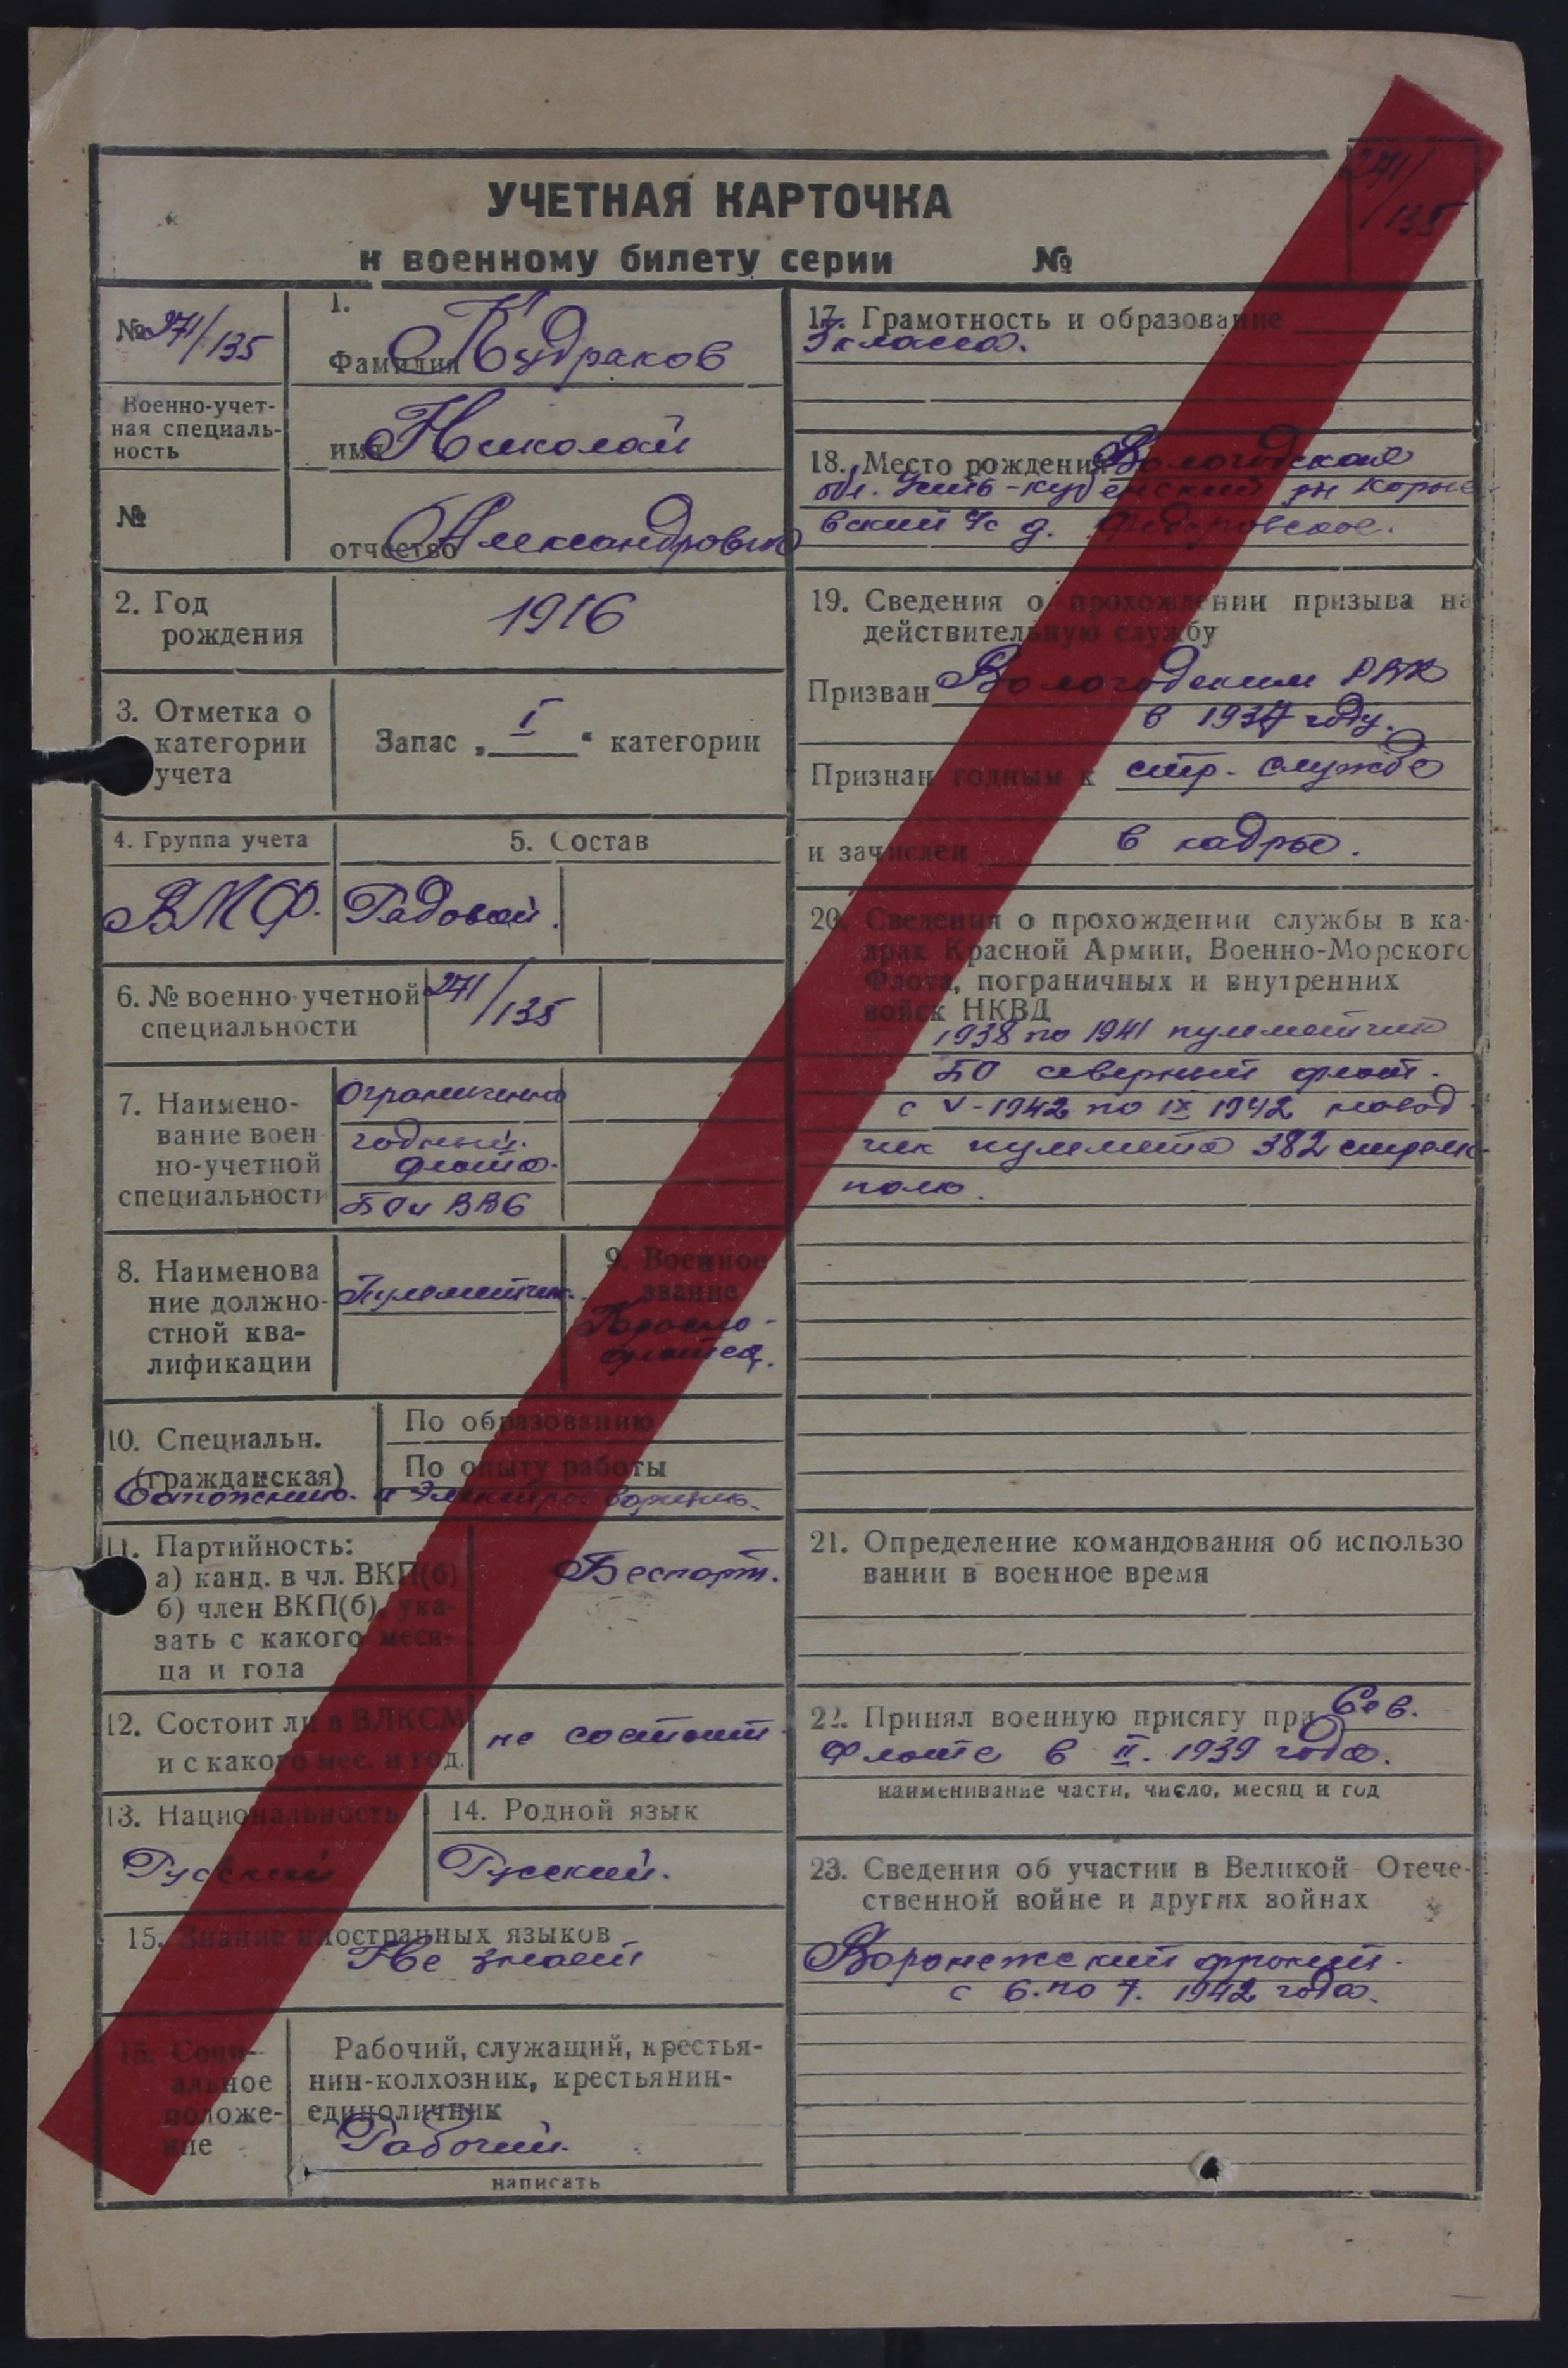 УЧЕТНАЯ КАРТОЧКА
к военному билету серии №
271/
/135
№ 271/135
Военно-учет-
ная специаль-
ность
№
1.
Фамилия Кудраков
имя Николай
отчество Александрович
2. Год
рождения
1916
3. Отметка о
категории
учета
Запас „ I “ категории
4. Группа учета
5. Состав
ВМФ.
Рядовой.
6. № военно-учетной
специальности
271/135
7. Наимено-
вание воен
но-учетной
специальности
Ограниченно
годный.
флота.
БО и ВВС
8. Наименова
ние должно-
стной ква-
лификации
Пулеметчик.
9. Военное
звание
Красно-
флотец.
10. Специальн.
(гражданская)
По образованию
По опыту работы
Сапожник. и Электросварщик.
11. Партийность:
а) канд. в чл. ВКП(б)
б) член ВКП(б), ука-
зать с какого меся-
ца и года
Беспарт.
12. Состоит ли в ВЛКСМ
и с какого мес. и год.
не состоит
13. Национальность
Русский
14. Родной язык
Русский.
15. Знание иностранных языков
Не знает
16. Соци-
альное
положе-
ние
Рабочий, служащий, крестья-
нин-колхозник, крестьянин-
единоличник
Рабочий.
написать
17. Грамотность и образование
3 класса.
18. Место рождения Вологодская
обл. Усть-кубенский рн Корне
вский с/с д. Федоровское.
19. Сведения о прохождении призыва на
действительную службу
Призван Вологодским РВК
в 1937 году.
Признан годным к стр. службе
и зачислен в кадры.
20. Сведения о прохождении службы в ка-
драх Красной Армии, Военно-Морского
Флота, пограничных и внутренних
войск НКВД
1938 по 1941 пулеметчик
БО северный флот.
с V-1942 по IX 1942 навод
чик пулемета 382 стрелк.
полк.
21. Определение командования об использо
вании в военное время
22. Принял военную присягу при Сев.
Флоте в II. 1939 года.
наименивание части, число, месяц и год
23. Сведения об участии в Великой Отече-
ственной войне и других войнах
Воронежский фронт.
с 6. по 7. 1942 года.